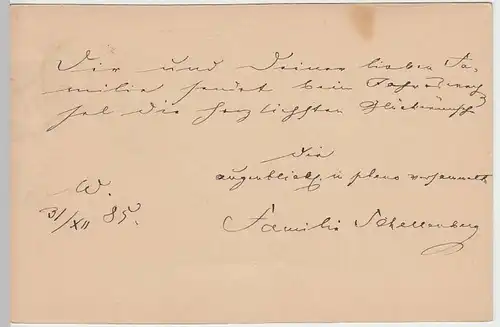 Dir und Deiner lieben Fa-
milie sendet beim Jahreswech-
sel die herzlichsten Glückwünsche
die
augenblickl. in pleno versammelte
W.
31/XII 85.
Familie Schellenberg